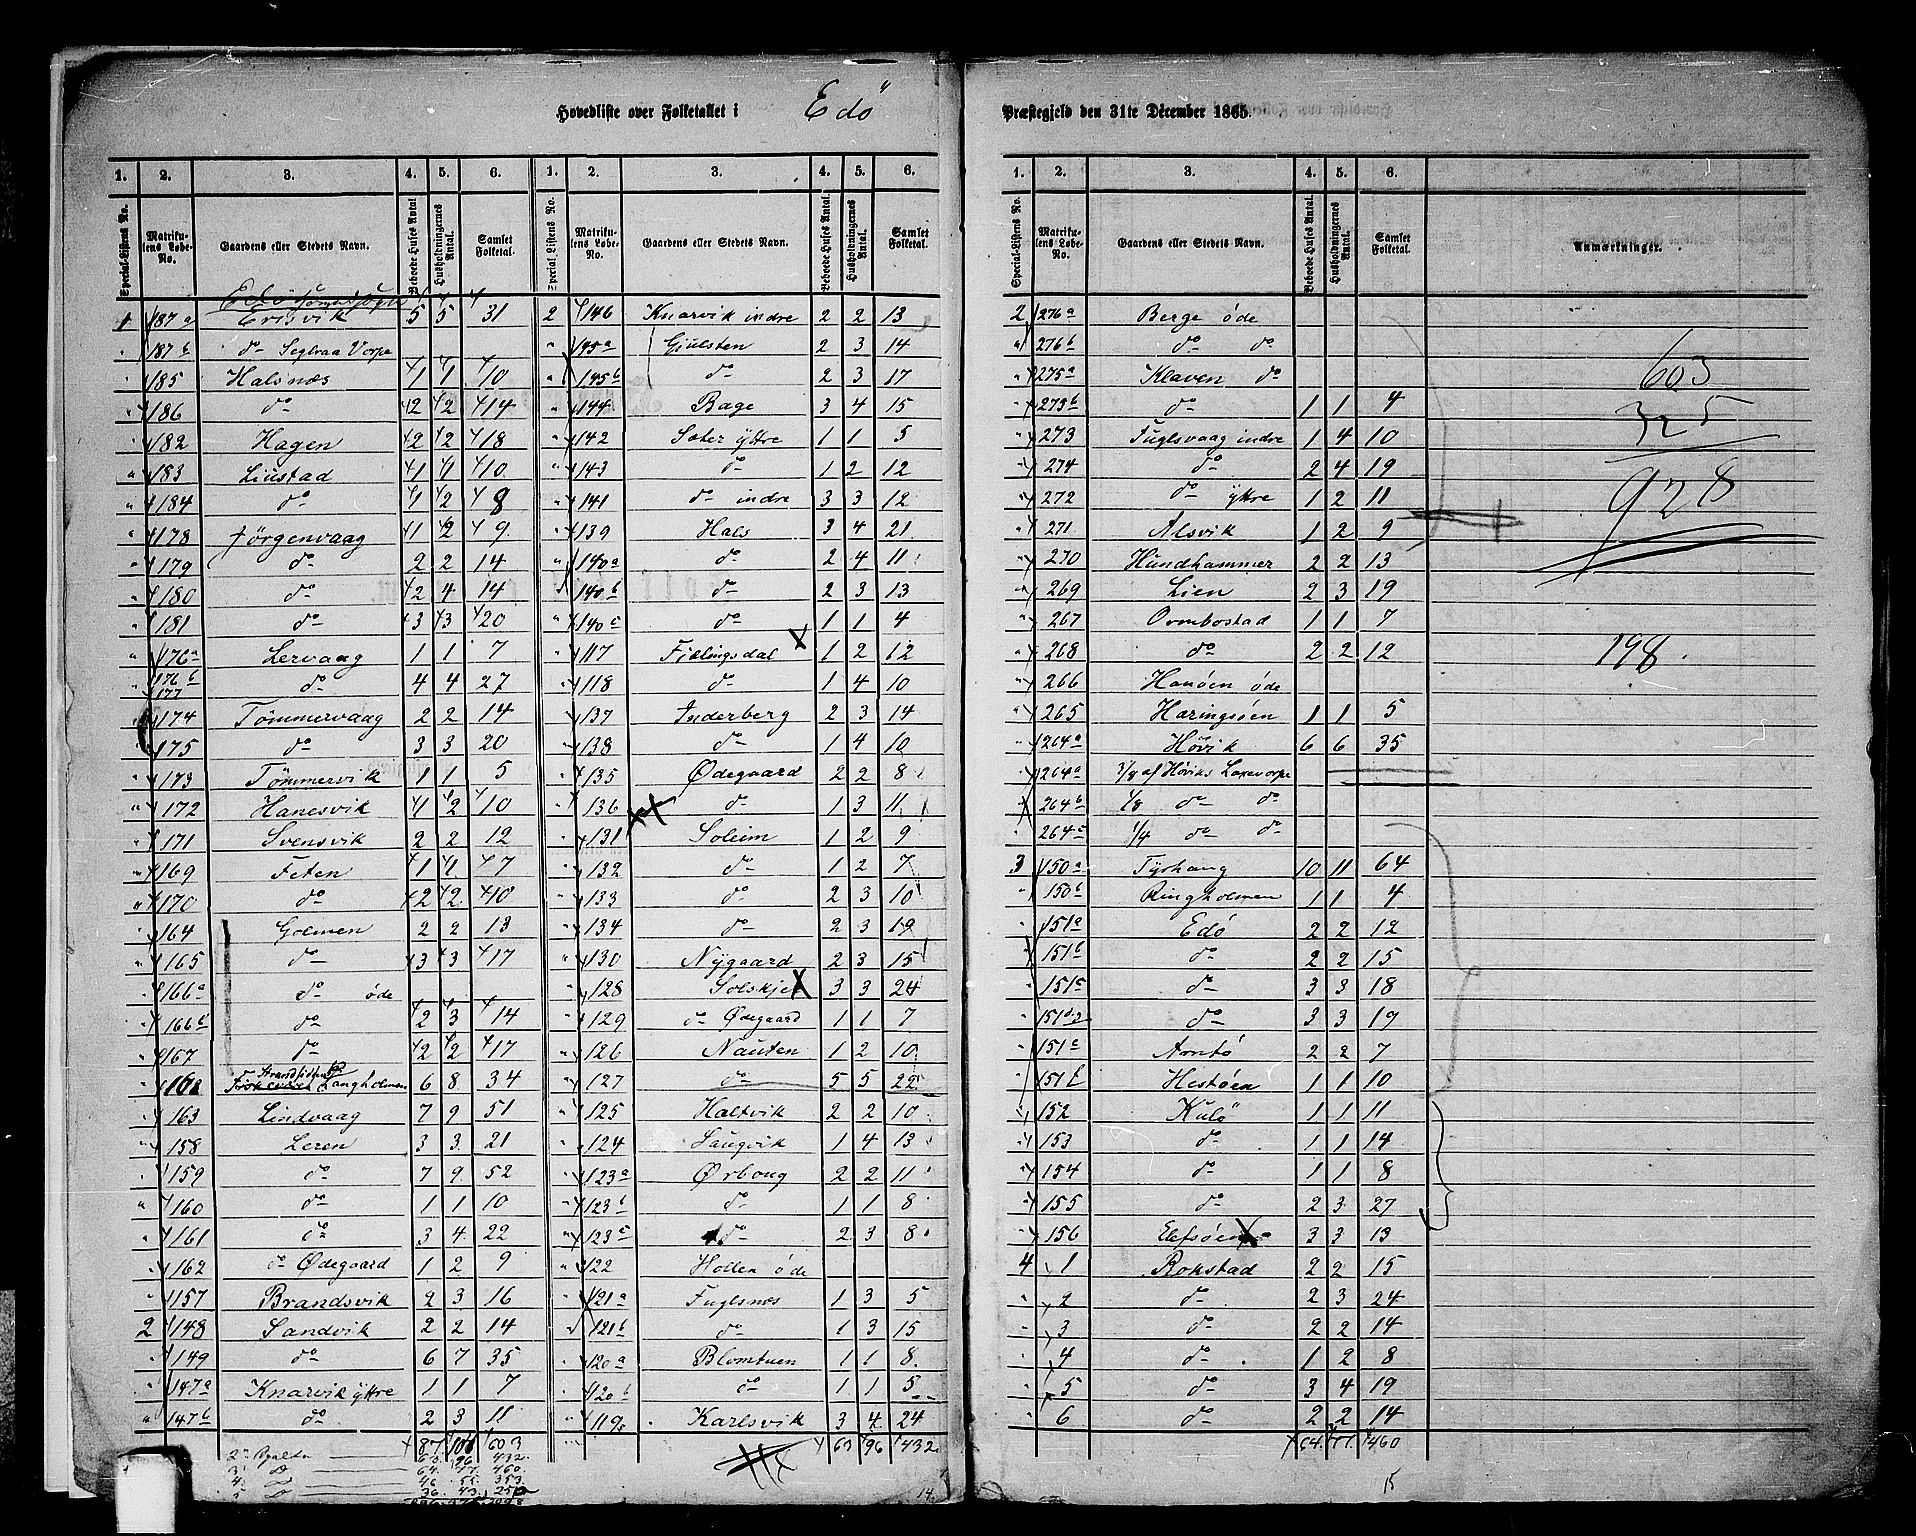 Hovedliste over Folketallet i Edö Præstegjeld den 31te December 1865.
1. 2. 3. 4. 5. 6. 1. 2. 3. 4. 5. 6.
Special-Listens No. Matrikulens Løbe-No. Gaardens eller Stedets Navn. Beboede Huses Antal. Husholdningernes Antal. Samlet Folketal. Special-Listens No. Matrikulens Løbe-No. Gaardens eller Stedets Navn. Beboede Huses Antal. Husholdningernes Antal. Samlet Folketal.
Edö
1 187a Erisvik 5 5 31 2 146 Knarvik indre 2 2 13
" 187b do Seglraa Vorpe " 145a Gjulsten 2 3 14
" 185 Halsnæs 1 1 10 " 145b do 2 3 17
" 186 do 2 2 14 " 144 Bage 3 4 15
" 182 Hagen 2 2 18 " 142 Soter yttre 1 1 5
" 183 Liustad 1 1 10 " 143 do 1 2 12
" 184 do 1 2 8 " 141 do indre 3 3 12
" 178 Jörgenvaag 1 2 9 " 139 Hals 3 4 21
" 179 do 2 2 14 " 140a do 2 4 11
" 180 do 2 4 14 " 140b do 2 3 13
" 181 do 3 3 20 " 140c do 1 1 4
" 176a Lervaag 1 1 7 " 117 Fillingsdal 1 2 12
" 176b 177 do 4 4 27 " 118 do 1 4 10
" 174 Tömmervaag 2 2 14 " 137 Inderberg 2 3 14
" 175 do 3 3 20 " 138 do 1 4 10
" 173 Tömmervik 1 1 5 " 135 Ødegaard 2 2 8
" 172 Hanesvik 1 2 10 " 136 do 1 3 11
" 171 Svensvik 2 2 12 " 131 Soleim 1 2 9
" 169 Feten 1 1 7 " 132 do 1 2 7
" 170 do 2 2 10 " 133 do 2 3 10
" 164 Golmen 2 2 13 " 134 do 2 3 19
" 165 do 3 3 17 " 130 Nygaard 2 3 15
" 166a do öde " 128 Solskjel 3 3 24
" 166b do 2 3 14 " 129 do Ødegaard 1 1 7
" 167 do 2 2 17 " 126 Nauten 1 2 10
" 168 Langholmen 6 8 34 " 127 do 5 5 22
" 163 Lindvaag 7 9 51 " 125 Haltvik 2 2 10
" 158 Leren 3 3 21 " 124 Laugvik 1 4 13
" 159 do 7 9 52 " 123a Ørboug 2 2 11
" 160 do 1 1 10 " 123b do 1 1 8
" 161 do 3 4 22 " 123c do 2 3 8
" 162 do Ødegaard 1 2 9 " 122 Hollen öde
" 157 Brandsvik 2 3 16 " 121a Fuglsnæs 1 3 5
2 148 Sandvik 2 2 14 " 121b do 1 3 15
" 149 do 6 7 35 " 120a Blomtuen 1 1 8
" 147a Knarvik yttre 1 1 7 " 120b do 1 1 5
" 147b do 2 3 11 " 119 Karlsvik 3 4 24
87 106 603 63 96 432
2 63 96 432
3 do 64 77 460
4 46 55 353
36 43 250
14
1. 2. 3. 4. 5. 6.
Special-Listens No. Matrikulens Løbe-No. Gaardens eller Stedets Navn. Beboede Huses Antal. Husholdningernes Antal. Samlet Folketal. Anmærkninger.
2 276a Berge öde
" 276b do do
" 275a Klaven do
" 273b do 1 1 4
" 273 Fuglsvaag indre 1 4 10
" 274 do 2 4 19
" 272 do yttre 1 2 11
" 271 Alsvik 1 2 9
" 270 Hundhammer 2 2 13
" 269 Lien 2 3 19
" 267 Ormbostad 1 1 7
" 268 do 2 2 12
" 266 Hanöen öde
" 265 Haringsöen 1 1 5
" 264a Hövik 6 6 35
" 264a 3/8 af Höviks Laxevorpe
" 264b 1/8 do do
" 264c 1/4 do do
3 150a Tyrhaug 10 11 64
" 150b Ringholmen 1 1 4
" 151a Edö 2 2 12
" 151b do 2 2 15
" 151c do 3 3 18
" 151d do 3 3 19
" 151e Arntö 2 2 7
" 151f Hestöen 1 1 10
" 152 Kulö 1 1 11
" 153 do 1 1 14
" 154 do 1 1 8
" 155 do 2 3 27
" 156 Elefsöen 3 3 13
4 1 Rokstad 2 2 15
" 2 do 2 3 24
" 3 do 2 2 14
" 4 do 1 2 8
" 5 do 3 4 19
" 6 do 2 2 14
64 77 460
603
325
928
198
15